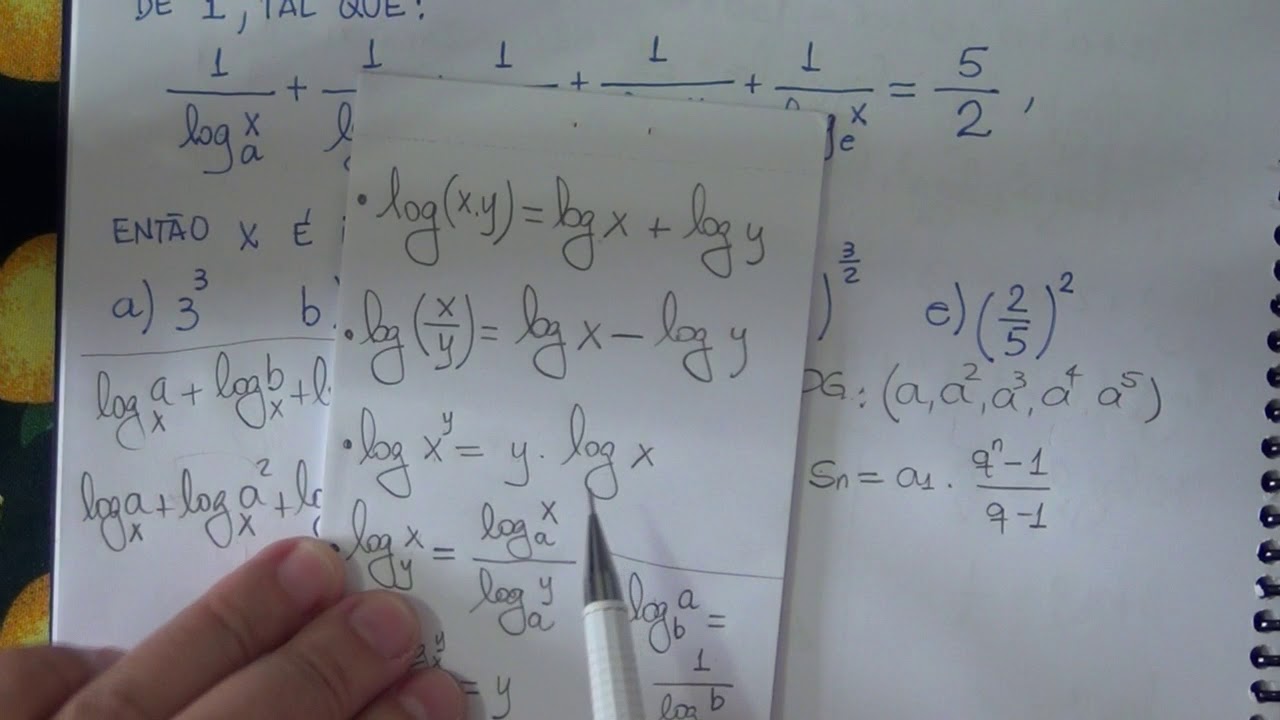 DE 1, TAL QUE:
1/log_a^x + 1/l + 1 + 1 + 1/g_e^x = 5/2,
ENTÃO X É
a) 3^3 b )^(3/2) e) (2/5)^2
log_x^a + log_x^b + l
log_x a + log_x a^2 + lo
PG: (a, a^2, a^3, a^4 a^5)
Sn = a1 . (q^n - 1)/(q - 1)
• log(x.y) = log x + log y
• log(x/y) = log x - log y
• log x^y = y . log x
• log_y^x = log_a^x / log_a^y
= y
log_b^a =
1/log b